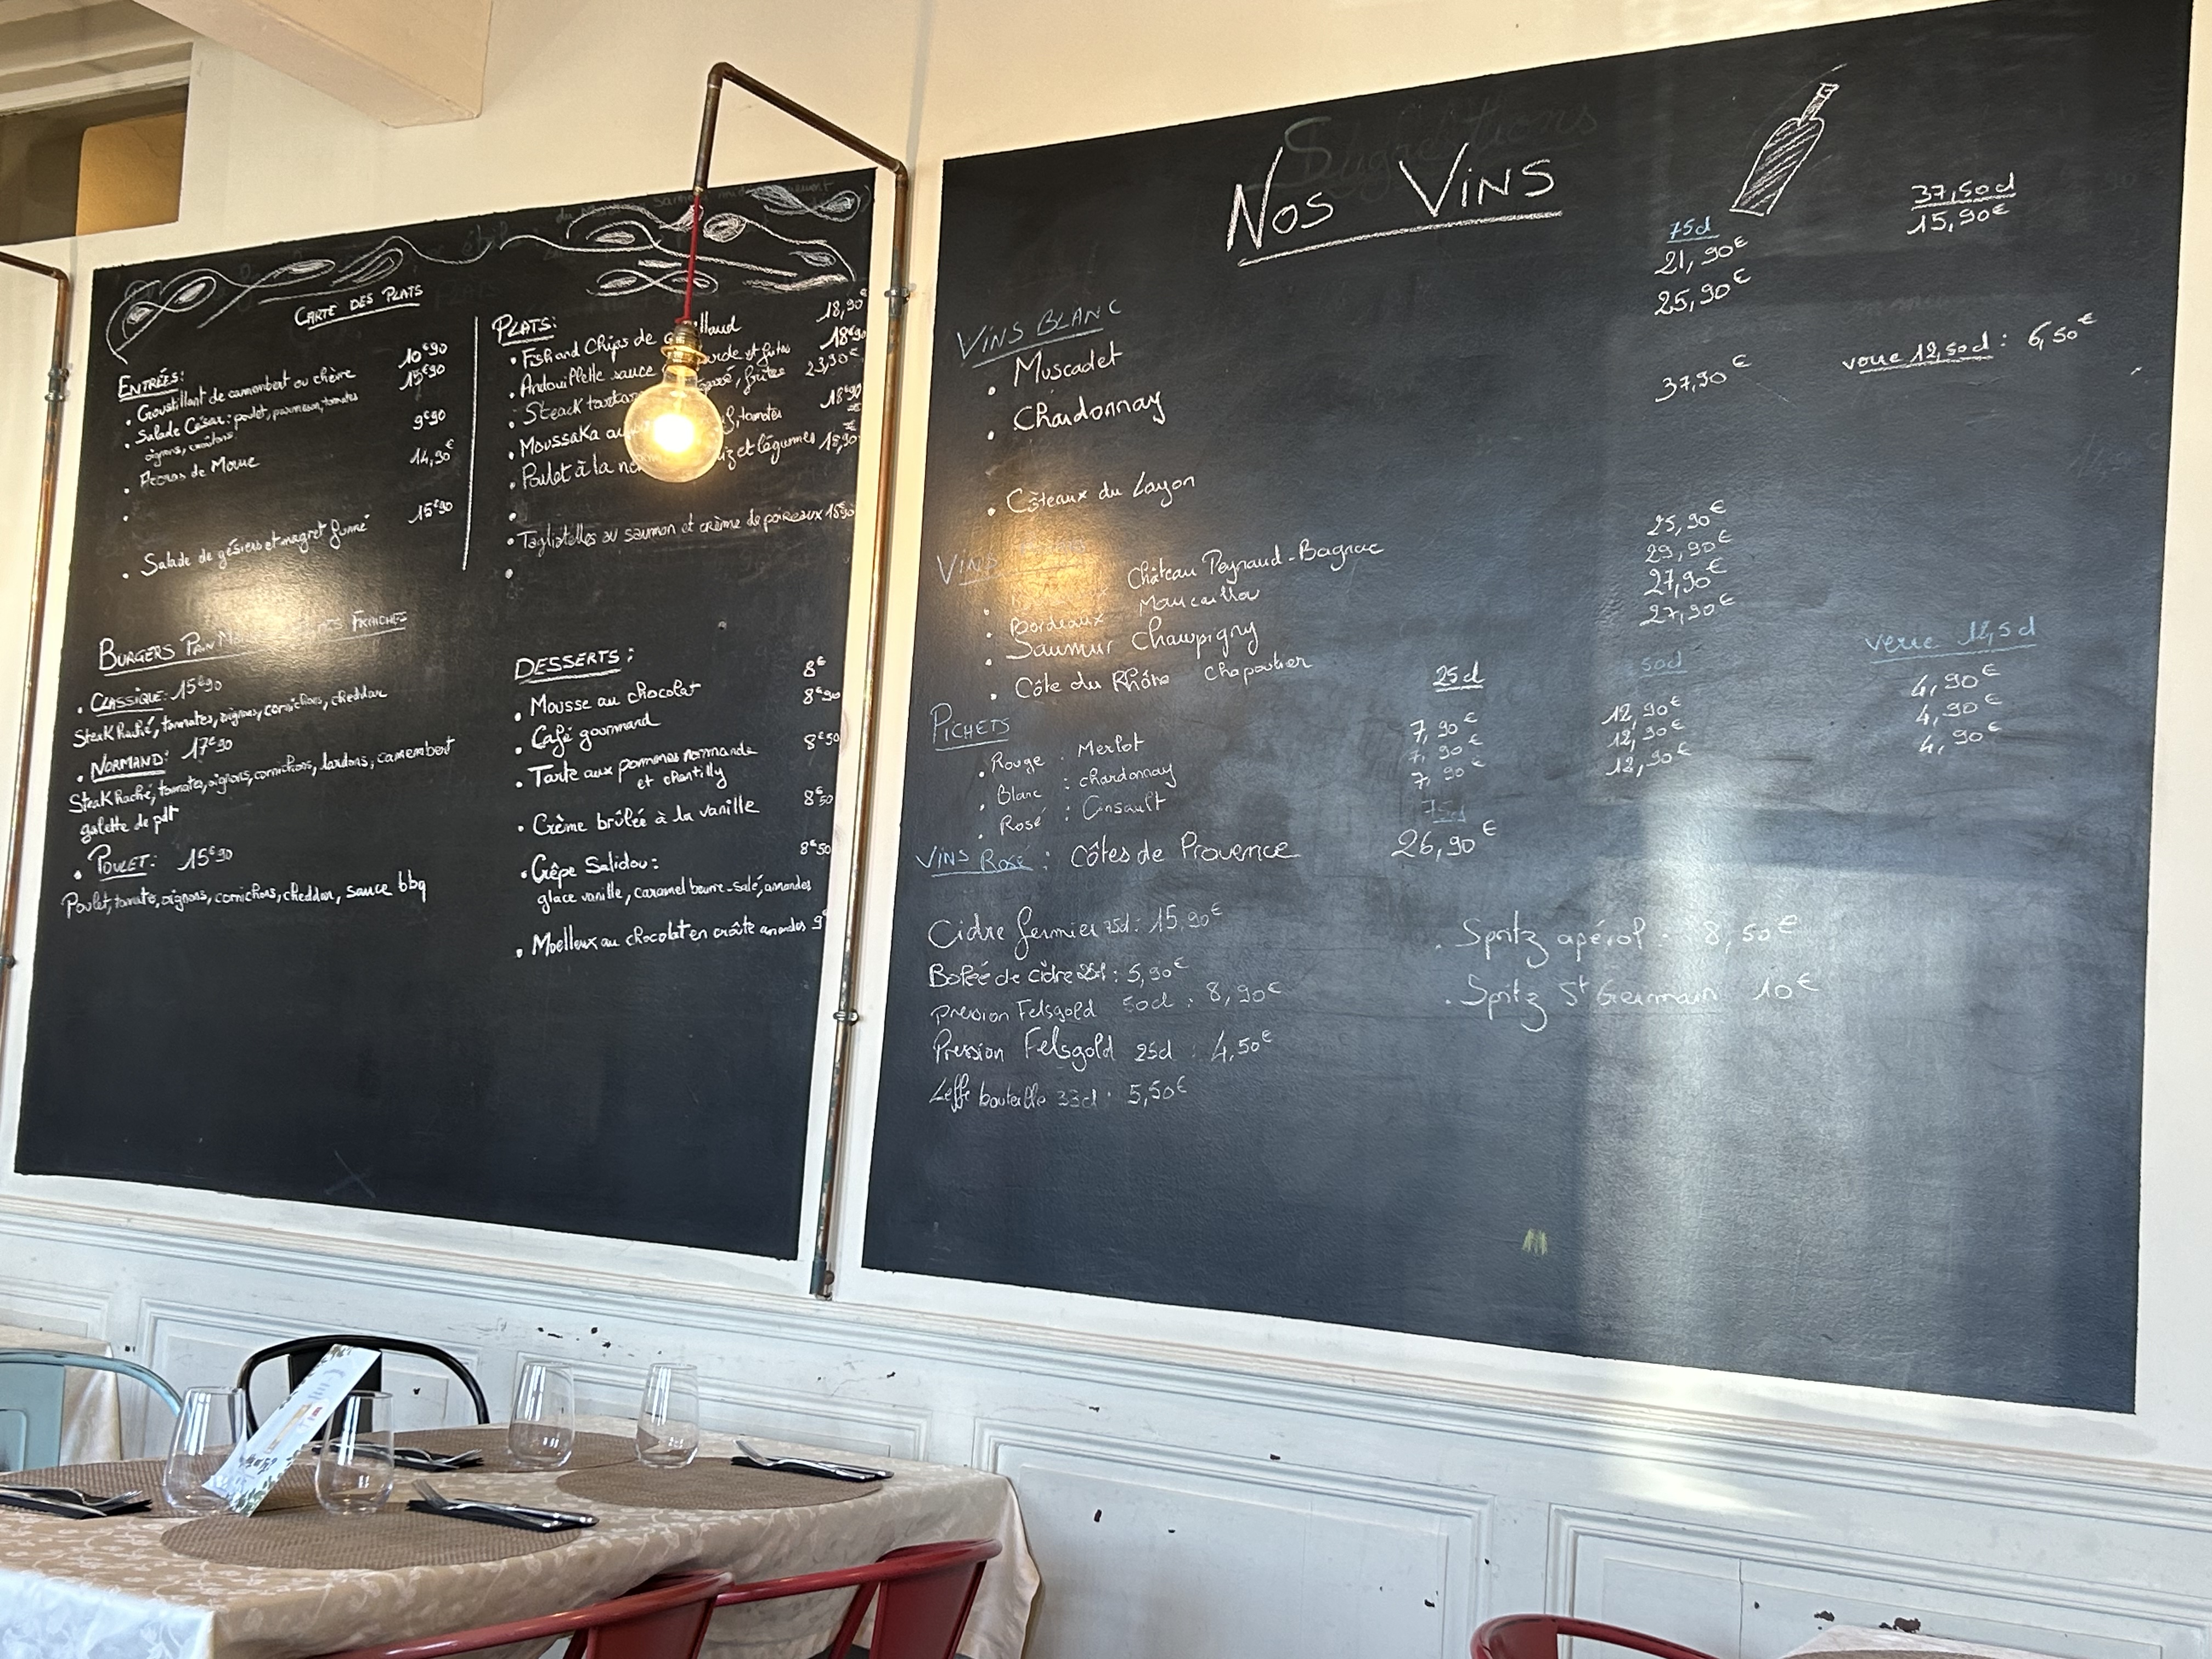 CARTE DES PLATS
ENTRÉES:
• Croustillant de camembert ou chèvre 10€90
• Salade César: poulet, parmesan, tomates 15€90
oignons, croûtons
• Accras de Morue 9€90
• 14,90€
• Salade de gésiers et magret fumé 15€90
PLATS:
• Fish and Chips de 18,90€
• Andouillette sauce et frites 18€90
• Steack frites 23,90€
• Moussaka tomates 18€90
• Poulet à la et légumes 18,90
•
• Tagliatelles au saumon et crème de poireaux 18€90
•
BURGERS PAIN FRAICHES
• CLASSIQUE: 15€90
Steak haché, tomates, oignons, cornichons, cheddar
• NORMAND: 17€90
Steak haché, tomates, oignons, cornichons, lardons, camembert
galette de pdt
• POULET: 15€90
Poulet, tomate, oignons, cornichons, cheddar, sauce bbq
DESSERTS:
• Mousse au chocolat 8€
• Café gourmand 8€90
• Tarte aux pommes normande 8€50
et chantilly
• Crème brûlée à la vanille 8€50
• Crêpe Salidou: 8€50
glace vanille, caramel beurre-salé, amandes
• Moelleux au chocolat en croûte amandes 9€
Suggestions
NOS VINS
75cl 37,50cl
VINS BLANC
• Muscadet 21,90€ 15,90€
• Chardonnay 25,90€
• Côteaux du Layon 37,90€ verre 12,50cl: 6,50€
VINS
• Château Peyraud-Bagnac 25,90€
• Bordeaux Maucaillou 29,90€
• Saumur Champigny 27,90€
• Côte du Rhône Chapoutier 27,90€
PICHETS 25cl 50cl verre 12,5cl
• Rouge: Merlot 7,90€ 12,90€ 4,90€
• Blanc: chardonnay 7,90€ 12,90€ 4,90€
• Rosé: Cinsault 7,90€ 12,90€ 4,90€
75cl
VINS ROSÉ: Côtes de Provence 26,90€
Cidre fermier 75cl: 15,90€
Bolée de cidre 25cl: 5,90€
Pression Felsgold 50cl: 8,90€
Pression Felsgold 25cl: 4,50€
Leffe bouteille 33cl: 5,50€
• Spritz apérol: 8,50€
• Spritz St Germain 10€